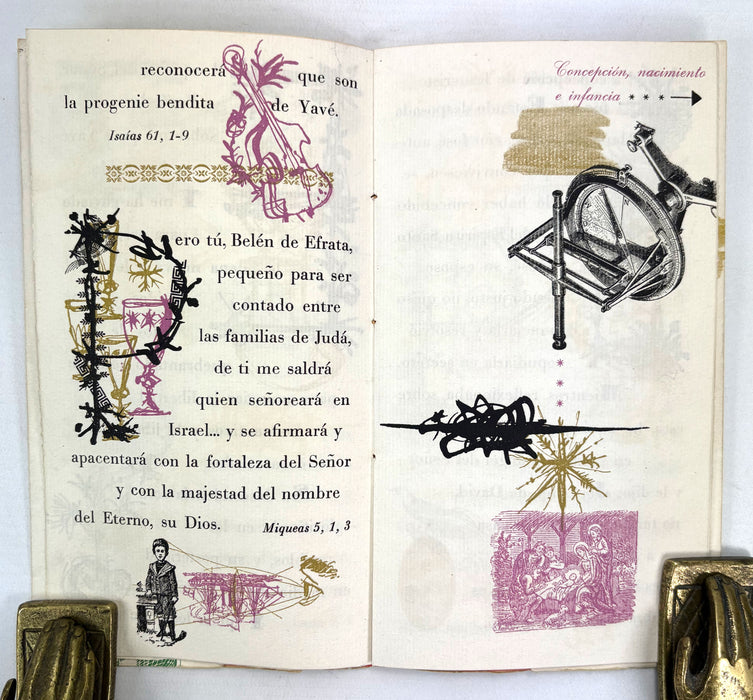 reconocerá que son
la progenie bendita de Yavé.
Isaías 61, 1-9
Pero tú, Belén de Efrata,
pequeño para ser
contado entre
las familias de Judá,
de ti me saldrá
quien señoreará en
Israel... y se afirmará y
apacentará con la fortaleza del Señor
y con la majestad del nombre
del Eterno, su Dios.
Miqueas 5, 1, 3
Concepción, nacimiento
e infancia